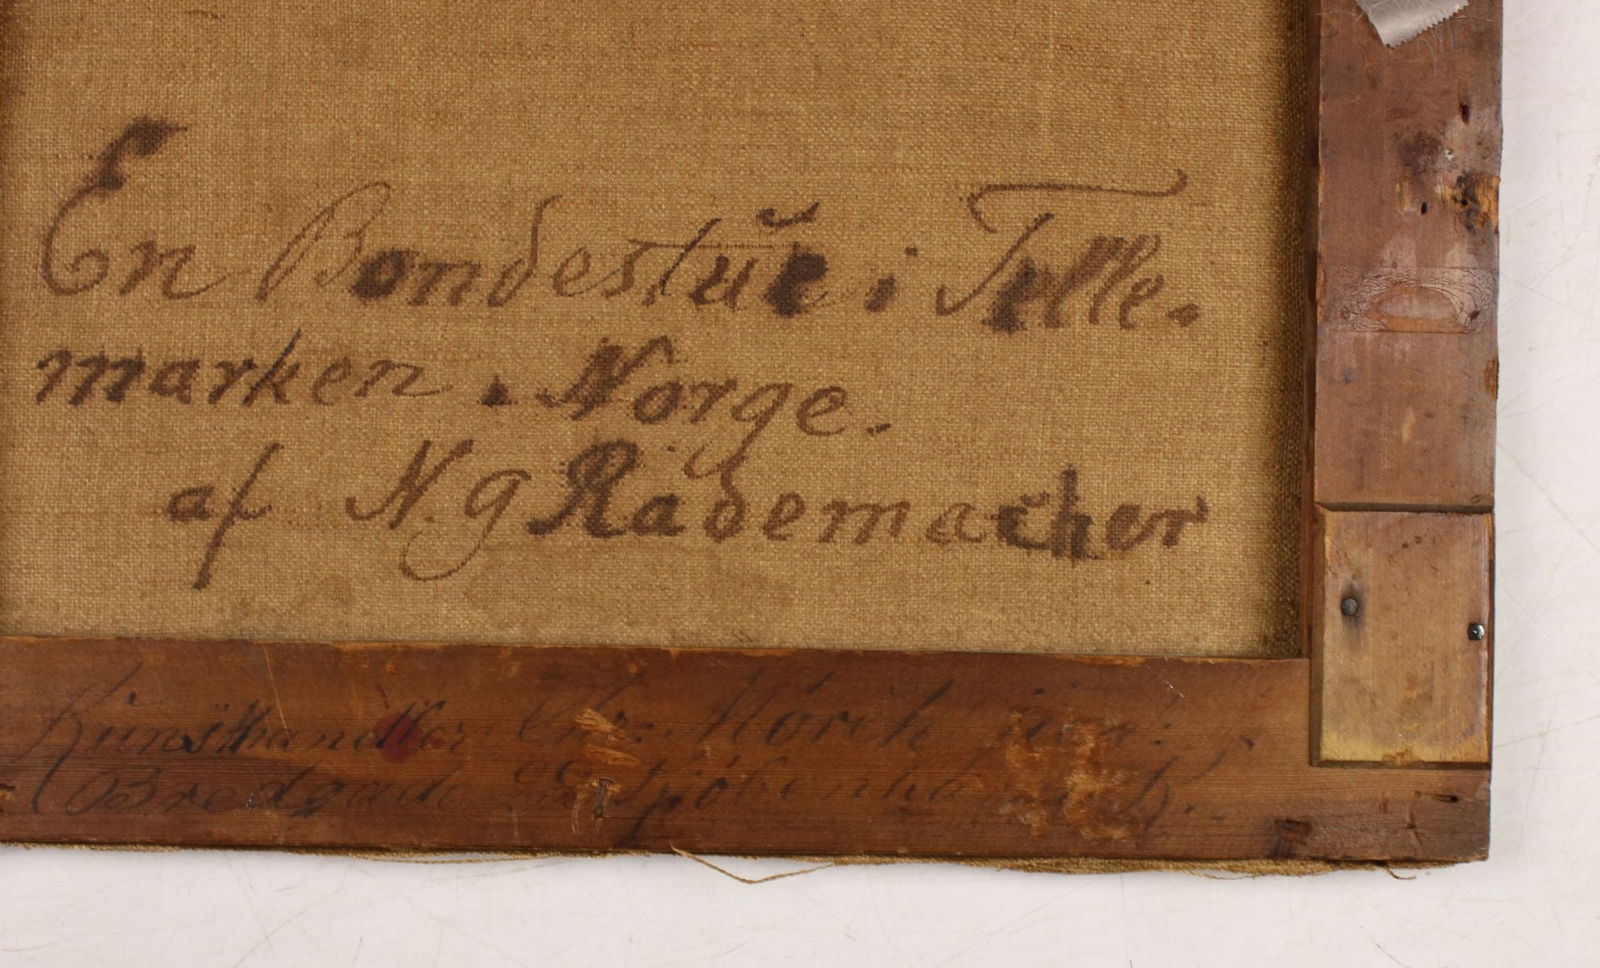 En Bondestue i Telle-
marken. Norge.
af N. G Rademacher
Kunsthandler Chr: Mörch jun:
Bredgade Kjöbenhavn K.